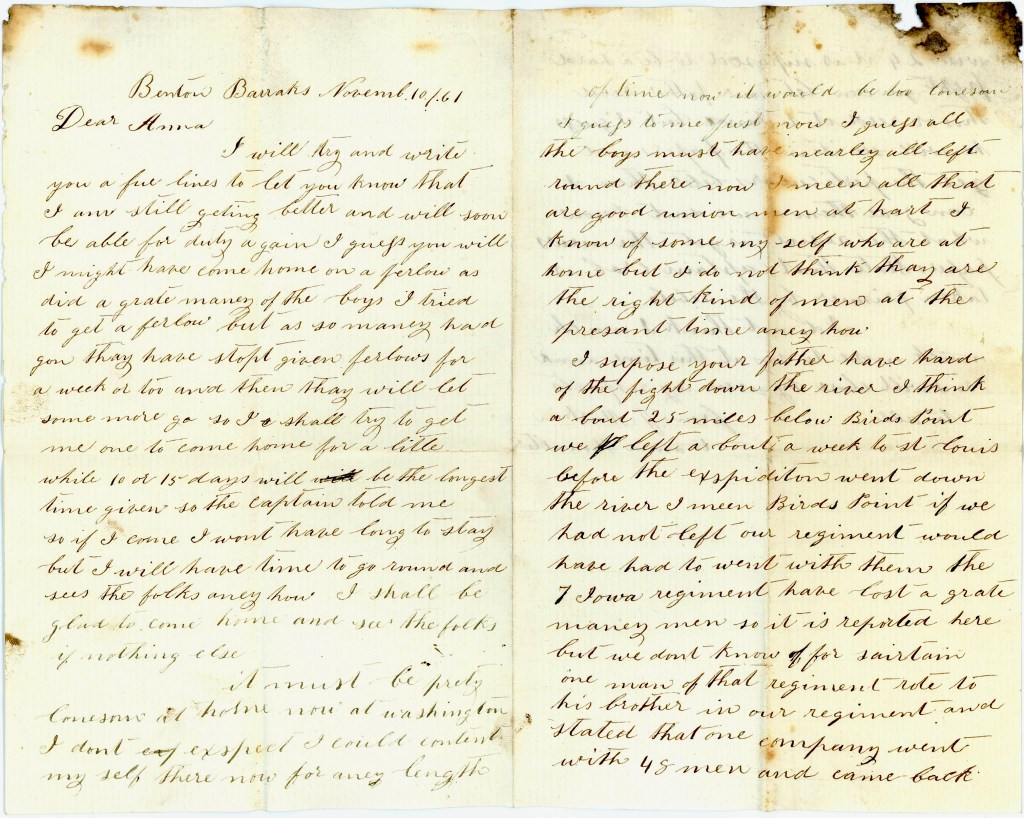 Benton Barraks Novemb. 10/.61
Dear Anna
I will try and write
you a fue lines to let you know that
I am still geting better and will soon
be able for duty again I guess you will
I might have come home on a ferlow as
did a grate maney of the boys I tried
to get a ferlow but as so maney had
gon thay have stopt given ferlows for
a week or too and then thay will let
some more go so I shall try to get
me one to come home for a little
while 10 or 15 days will be the longest
time given so the Captain told me
so if I come I wont have long to stay
but I will have time to go round and
sees the folks aney how I shall be
glad to come home and see the folks
if nothing else
it must be prety
lonesom at home now at washington
I dont exspect I could content
my self there now for aney length
of time now it would be too lonesom
I guess to me just now I guess all
the boys must have nearley all left
round there now I meen all that
are good union men at hart I
know of some my self who are at
home but I do not think thay are
the right kind of men at the
presant time aney how
I supose your father have hard
of the fight down the river I think
a bout 25 miles below Birds Point
we left a bout a week to st Louis
before the expidition went down
the river I meen Birds Point if we
had not left our regiment would
have had to went with them the
7 Iowa regiment have lost a grate
maney men so it is reported here
but we dont know for sairtain
one man of that regiment rote to
his brother in our regiment and
stated that one company went
with 48 men and came back